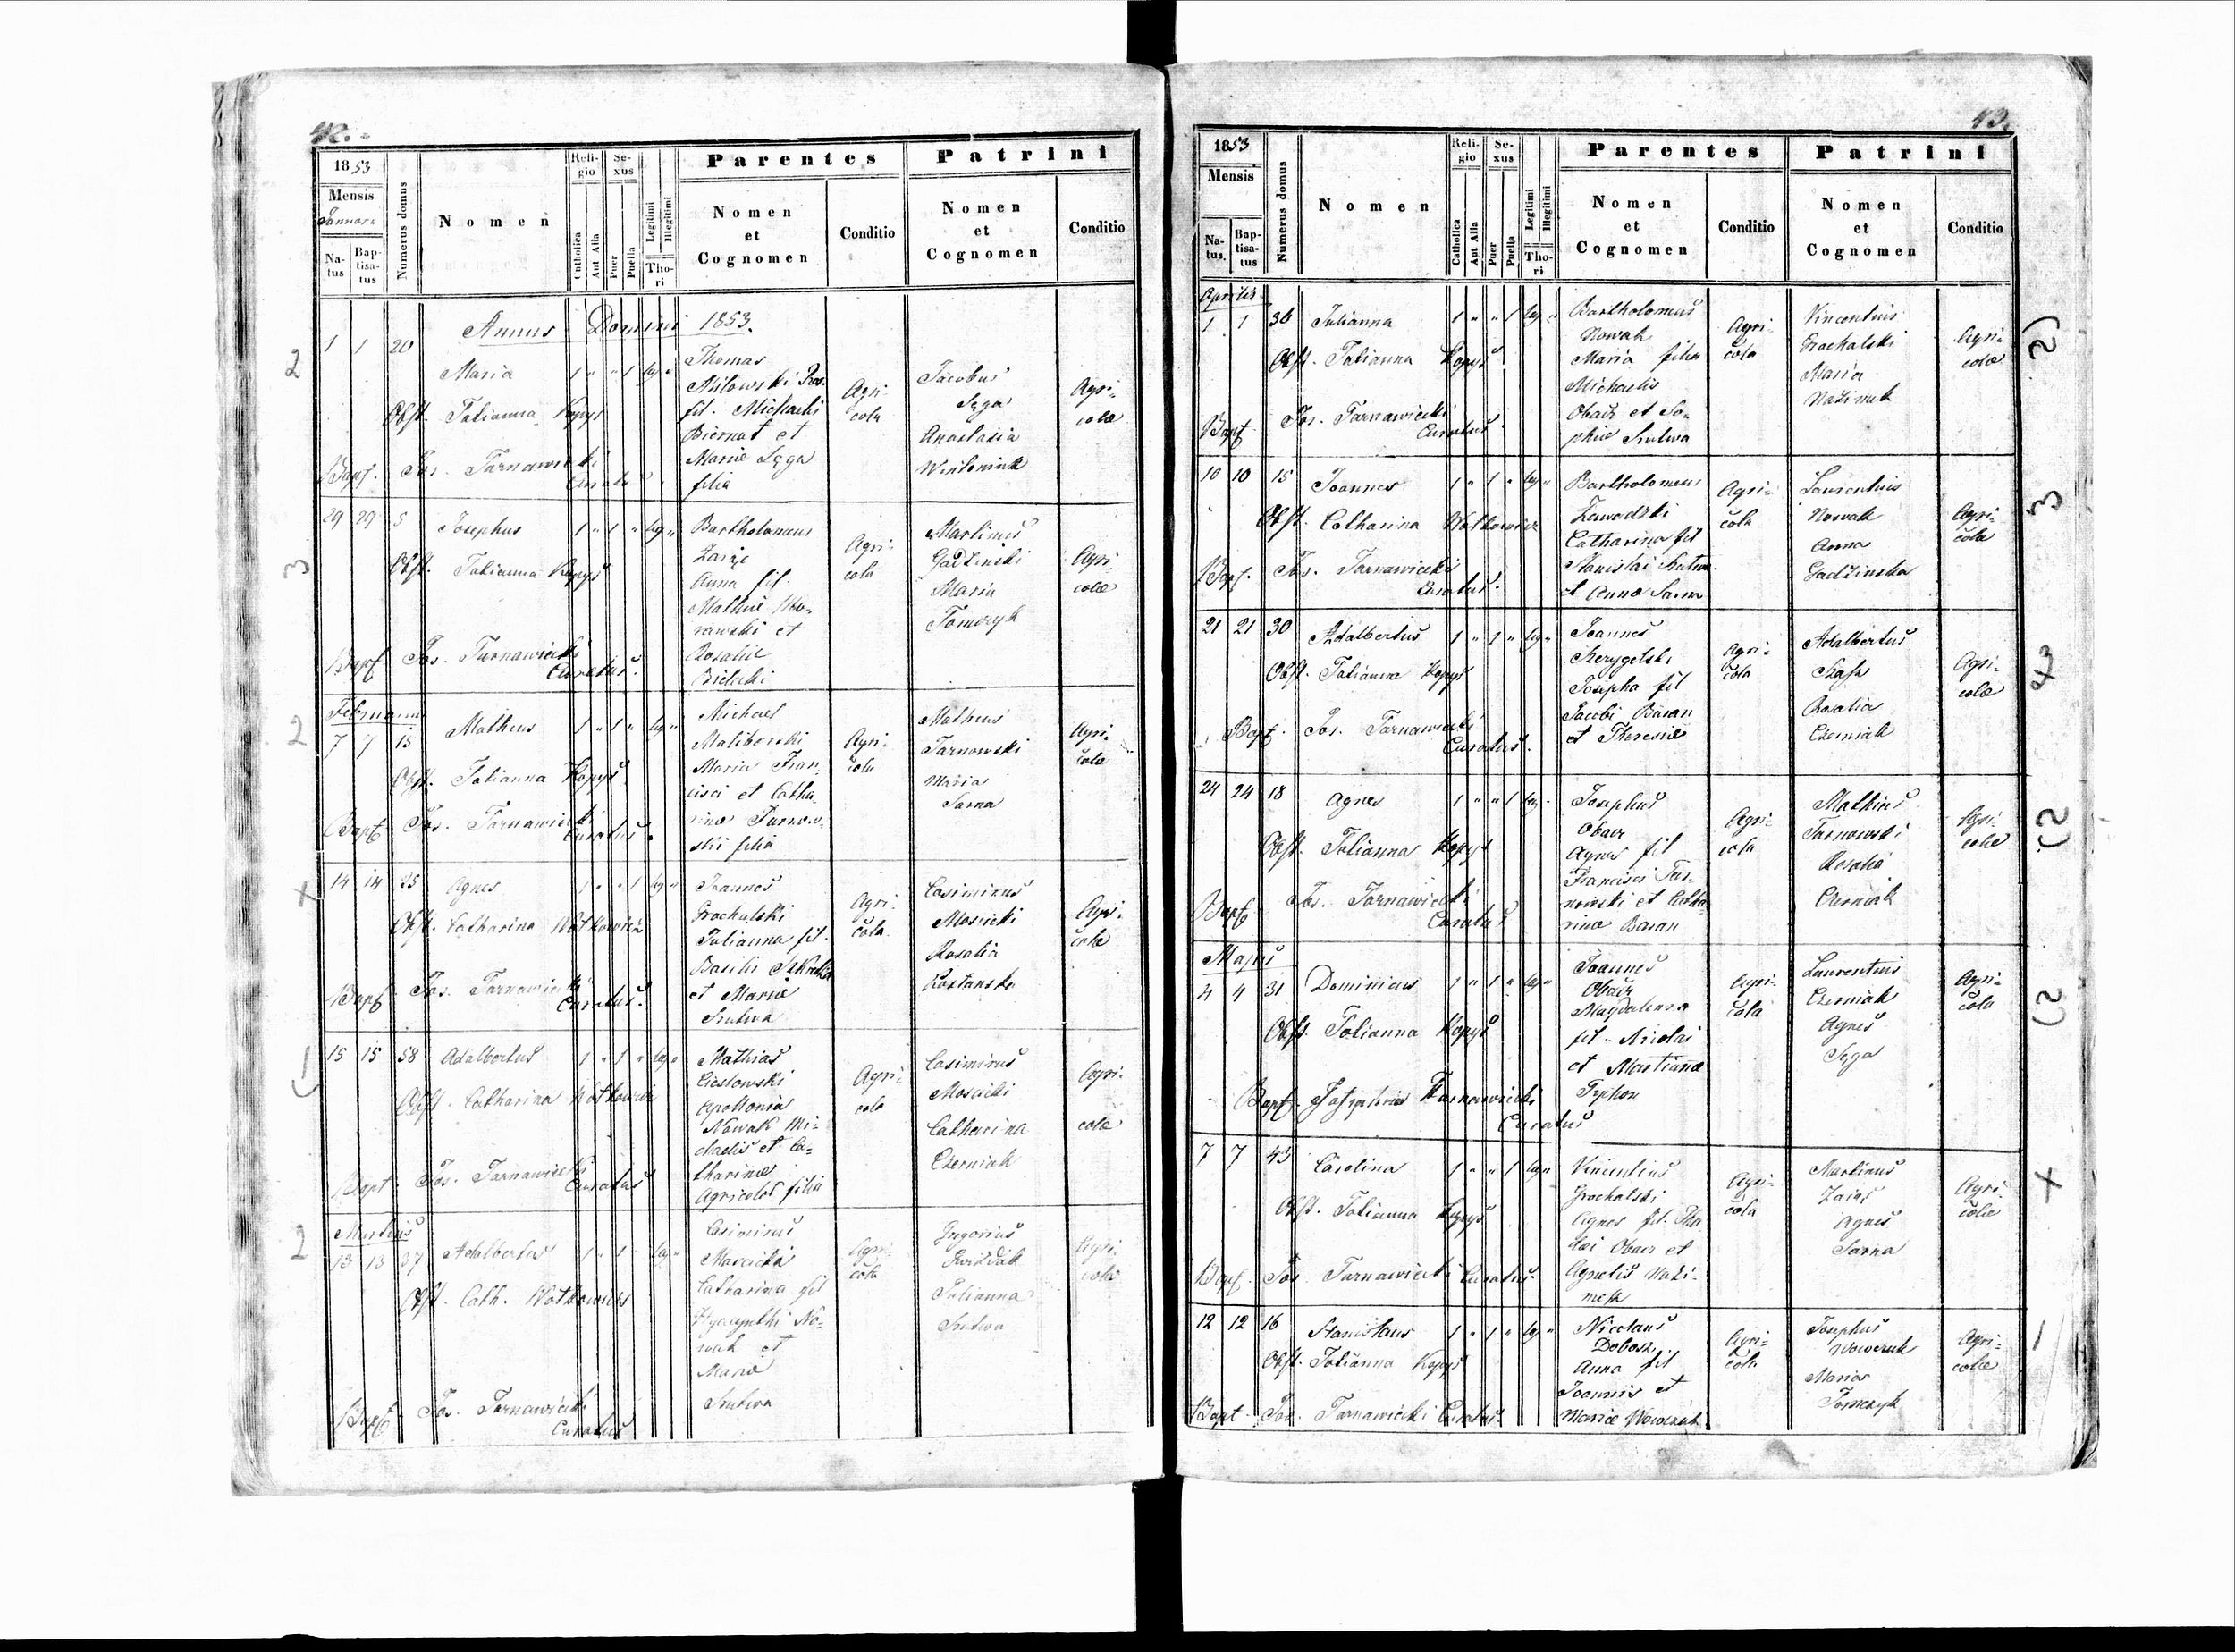 42.
1853
Mensis
Januari
Natus
Baptisatus
Numerus domus
Nomen
Religio
Catholica
Aut Alia
Sexus
Puer
Puella
Legitimi
Illegitimi
Thori
Parentes
Nomen
et
Cognomen
Conditio
Patrini
Nomen
et
Cognomen
Conditio
Annus Domini 1853.
1 1 20 Maria 1 " " 1 leg "
Obst. Tatianna Kopyś
Bapt. Jos. Tarnawiecki
Curatus
Thomas
Milowski
fil. Michaelis
Biernat et
Mariæ Sęga
filia
Agri-
cola
Jacobus
Sęga
Anastasia
Agri-
colæ
29 29 5 Josephus 1 " 1 " leg "
Obst. Tatianna Kopyś
Bapt. Jos. Tarnawiecki
Curatus.
Bartholomeus
Anna fil.
Mathiæ Mo-
rawski et
Rosaliæ
Bielecki
Agri-
cola
Martinus
Gadziński
Maria
Tomczyk
Agri-
colæ
Februarius
7 7 13 Matheus 1 " 1 " leg "
Obst. Tatianna Kopyś
Bapt. Jos. Tarnawiecki
Curatus.
Michael
Maliborski
Maria Fran-
cisci et Catha-
rinæ Tarnow-
ski filia
Agri-
cola
Matheus
Tarnowski
Maria
Sarna
Agri-
colæ
14 14 25 Agnes 1 " " 1 leg "
Obst. Catharina Wotkowicz
Bapt. Jos. Tarnawiecki
Curatus.
Joannes
Grochalski
Julianna fil.
Basilii
et Mariæ
Srutwa
Agri-
cola
Casimirus
Moscicki
Rosalia
Rostanska
Agri-
colæ
15 15 58 Adalbertus 1 " 1 " leg "
Obst. Catharina Wotkowicz
Bapt. Jos. Tarnawiecki
Curatus
Mathias
Ciestowski
Apollonia
Nowak Mi-
chaelis et Ca-
tharinæ
Agricolæ filia
Agri-
cola
Casimirus
Moscicki
Catharina
Czerniak
Agri-
colæ
Martius
13 13 37 Adalbertus 1 " 1 " leg "
Obst. Cath. Wotkowicz
Bapt. Jos. Tarnawiecki
Curatus
Casimirus
Moscicki
Catharina fil
Hyacynthi No-
wak et
Mariæ
Srutwa
Agri-
cola
Gregorius
Julianna
Srutwa
Agri-
colæ
43.
1853
Mensis
Natus.
Baptisatus
Numerus domus
Nomen
Religio
Catholica
Aut Alia
Sexus
Puer
Puella
Legitimi
Illegitimi
Thori
Parentes
Nomen
et
Cognomen
Conditio
Patrini
Nomen
et
Cognomen
Conditio
Aprilis
1 1 36 Julianna 1 " " 1 leg "
Obst. Tatianna Kopyś
Bapt. Jos. Tarnawiecki
Curatus.
Bartholomeus
Nowak
Maria filia
Michaelis
Obacz et So-
phiæ Srutwa
Agri-
cola
Vincentius
Grochalski
Maria
Nazimek
Agri-
colæ
10 10 15 Joannes 1 " 1 " leg "
Obst. Catharina Wotkowicz
Bapt. Jos. Tarnawiecki
Curatus.
Bartholomeus
Zawadzki
Catharina fil
Stanislai Srutwa
et Annæ Sarna
Agri-
cola
Laurentius
Nowak
Anna
Gadzinska
Agri-
colæ
21 21 30 Adalbertus 1 " 1 " leg "
Obst. Tatianna Kopyś
Bapt. Jos. Tarnawiecki
Curatus.
Joannes
Josepha fil
Jacobi Baran
et Theresiæ
Agri-
cola
Adalbertus
Rosalia
Czerniak
Agri-
colæ
24 24 18 Agnes 1 " " 1 leg "
Obst. Tatianna Kopyś
Bapt. Jos. Tarnawiecki
Curatus
Josephus
Obacz
Agnes fil
Francisci Tar-
nowski et Catha-
rinæ Baran
Agri-
cola
Mathias
Tarnowski
Rosalia
Czerniak
Agri-
colæ
Majus
4 4 31 Dominicus 1 " 1 " leg "
Obst. Tatianna Kopyś
Bapt. Josephus Tarnawiecki
Curatus
Joannes
Obacz
Magdalena
fil. Nicolai
et Martianæ
Tryhon
Agri-
cola
Laurentius
Czerniak
Agnes
Sęga
Agri-
cola
7 7 43 Carolina 1 " " 1 leg "
Obst. Tatianna Kopyś
Bapt. Jos. Tarnawiecki Curatus
Vincentius
Grochalski
Agnes fil. Tha-
dei Obacz et
Agnetis Nazi-
mek
Agri-
cola
Martinus
Zając
Agnes
Sarna
Agri-
colæ
12 12 16 Stanislaus 1 " 1 " leg "
Obst. Tatianna Kopyś
Bapt. Jos. Tarnawiecki Curatus
Nicolaus
Dobosz
Anna fil
Joannis et
Mariæ Wawczak
Agri-
cola
Josephus
Maria
Tomczyk
Agri-
colæ